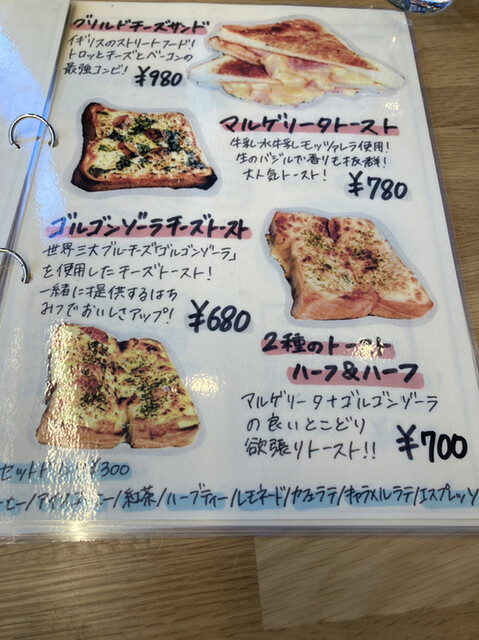 グリルドチーズサンド
イギリスのストリートフード!
トロッとチーズとベーコンの
最強コンビ! ¥980
マルゲリータトースト
牛乳水牛乳モッツァレラ使用!
生のバジルで香りも抜群!
大人気トースト! ¥780
ゴルゴンゾーラチーズトースト
世界三大ブルーチーズ「ゴルゴンゾーラ」
を使用したチーズトースト!
一緒に提供するはち
みつでおいしさアップ! ¥680
2種のトースト
ハーフ&ハーフ
マルゲリータ+ゴルゴンゾーラ
の良いとこどり
欲張りトースト!! ¥700
セットドリンク ¥300
/紅茶/ハーブティー/レモネード/カフェラテ/キャラメルラテ/エスプレッソ